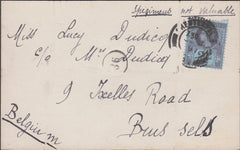 Specimens not valuable
Miss Lucy Dudicq
c/o Mrs Dudicq
9 Ixelles Road
Brussels
Belgium